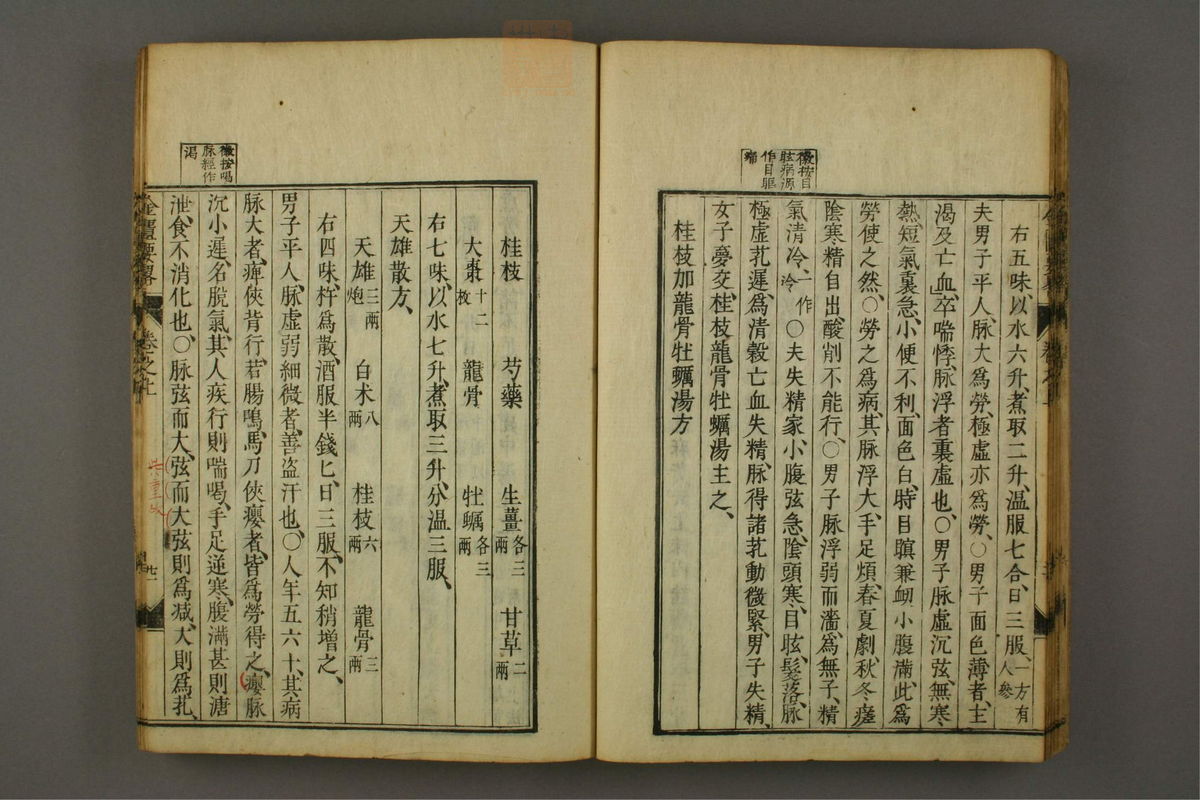 徽按目
眩病源
作目眶
痛
右五味、以水六升、煮取二升、温服七合、日三服、一方有人參
夫男子平人、脉大爲勞、極虛亦爲勞、○男子面色薄者、主
渴及亡血、卒喘悸、脉浮者裏虛也、○男子脉虛沉弦、無寒
熱、短氣裏急、小便不利、面色白、時目瞑兼衂小腹滿、此爲
勞使之然、○勞之爲病、其脉浮大、手足煩、春夏劇、秋冬瘥
陰寒精自出、酸削不能行、○男子脉浮弱而濇、爲無子、精
氣清冷、一作冷○夫失精家、小腹弦急、陰頭寒、目眩、髮落、脉
極虛芤遲、爲清穀亡血失精、脉得諸芤動微緊、男子失精、
女子夢交、桂枝龍骨牡蠣湯主之、
桂枝加龍骨牡蠣湯方
徽按喝
脉經作
渴
桂枝 芍藥 生薑各三兩 甘草二兩
大棗十二枚 龍骨 牡蠣各三兩
右七味、以水七升、煮取三升、分温三服、
天雄散方、
天雄三兩炮 白朮八兩 桂枝六兩 龍骨三兩
右四味、杵爲散、酒服半錢匕、日三服、不知稍增之、
男子平人、脉虛弱細微者、善盜汗也、○人年五六十、其病
脉大者、痺俠背行、若腸鳴、馬刀俠癭者、皆爲勞得之、癭脉
沉小遲、名脫氣、其人疾行則喘喝、手足逆寒、腹滿甚則溏
泄、食不消化也、○脉弦而大、弦而大弦則爲减、大則爲芤、
金匱要畧 卷之上 廿一